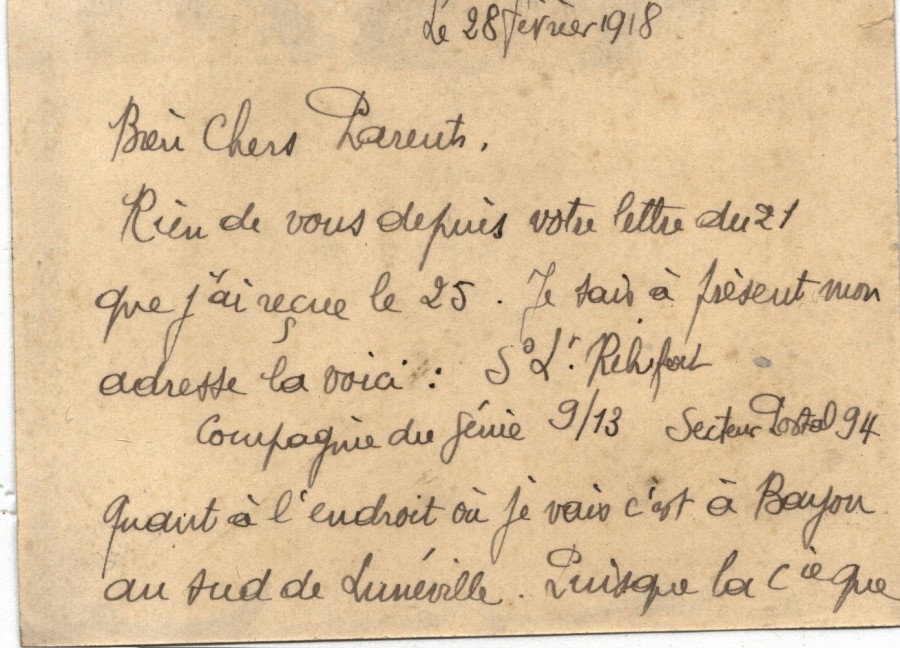 Le 28 février 1918
Bien Chers Parents.
Rien de vous depuis votre lettre du 21
que j'ai reçue le 25. Je sais à présent mon
adresse la voici : Ss Lt.
Compagnie du Génie 9/13 Secteur Postal 94
Quant à l'endroit où je vais c'est à Bayon
au sud de Lunéville. Puisque la Cie que